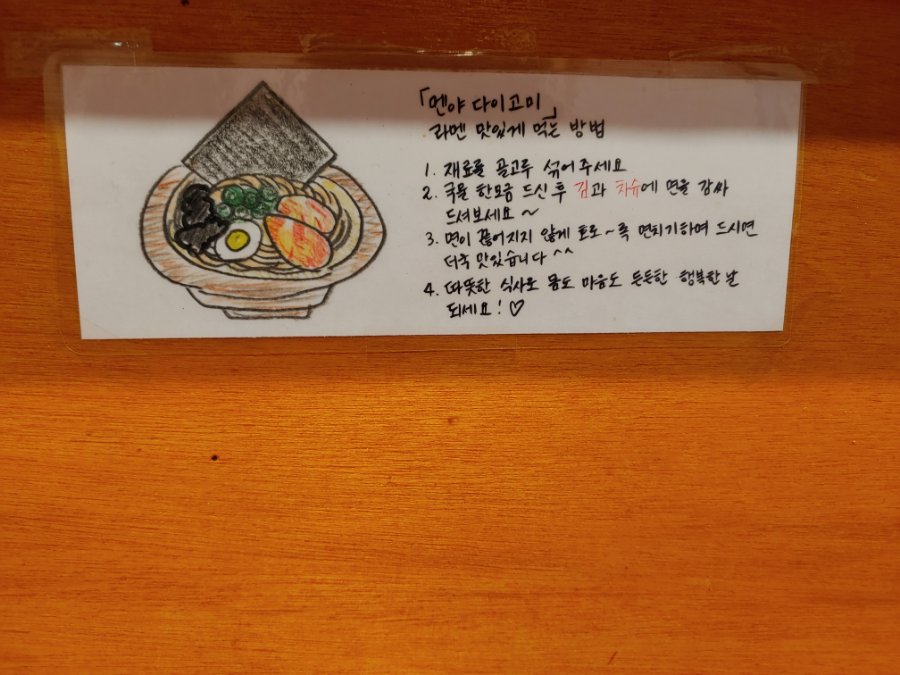 「멘야 다이고미」
라멘 맛있게 먹는 방법
1. 재료를 골고루 섞어주세요
2. 국물 한모금 드신 후 김과 차슈에 면을 감싸
드셔보세요~
3. 면이 끊어지지 않게 호로~록 면치기하며 드시면
더욱 맛있습니다^^
4. 따뜻한 식사로 몸도 마음도 든든한 행복한 날
되세요! ♡